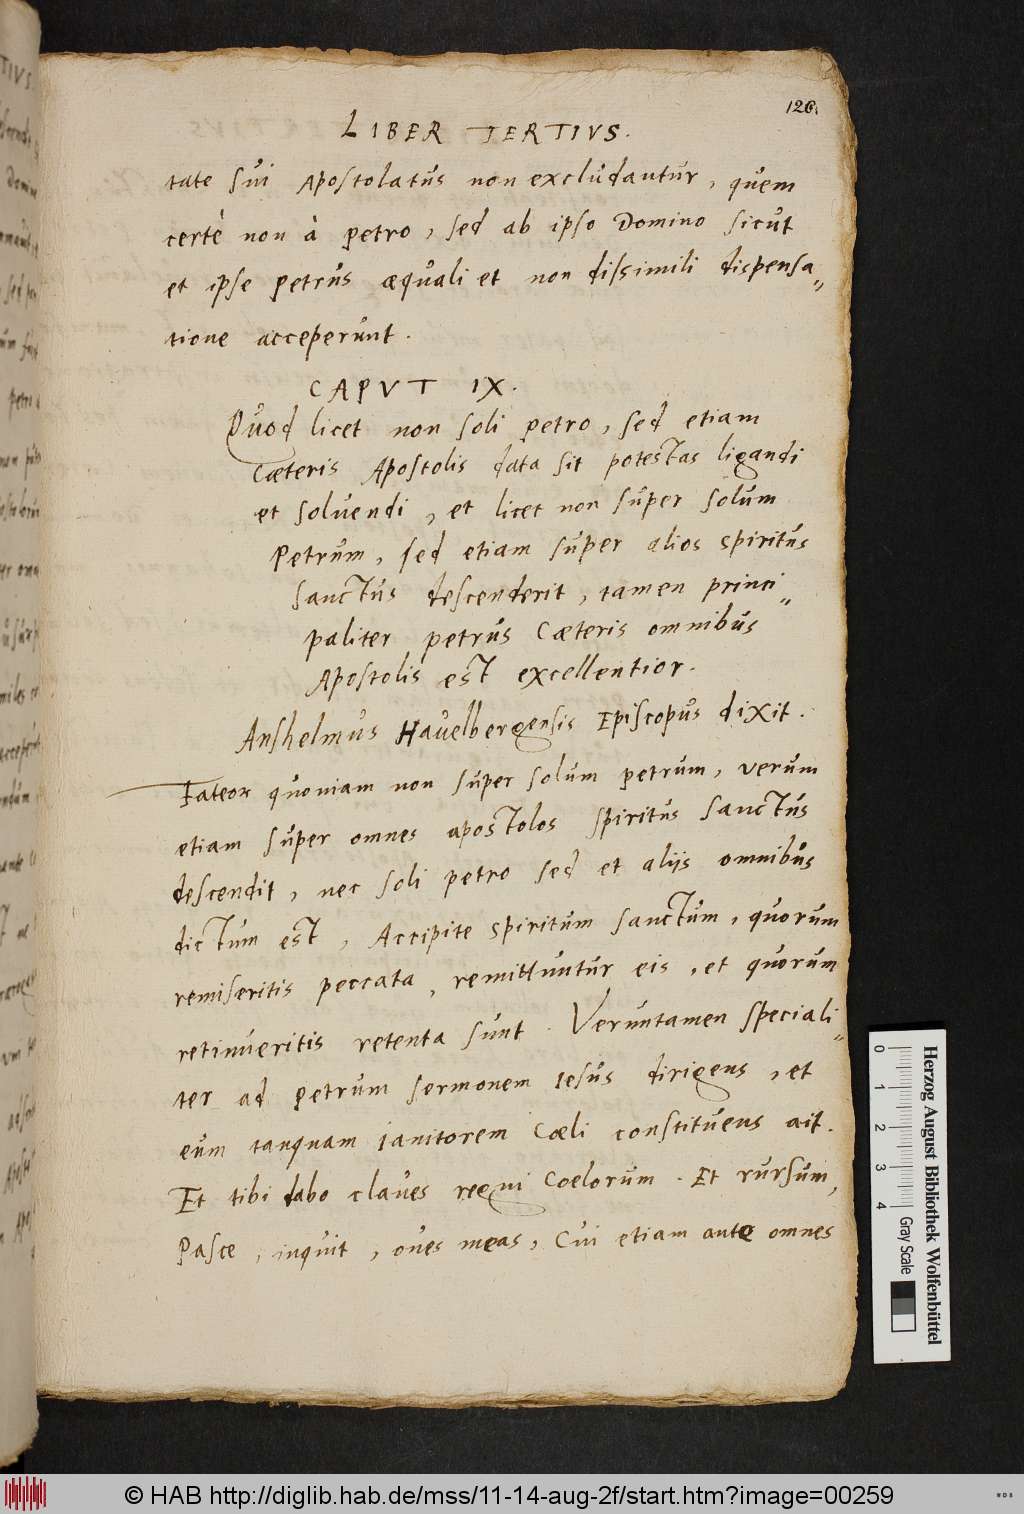 126.
LIBER TERTIVS.
tate sui Apostolatus non excludantur, quem
certè non à petro, sed ab ipso Domino sicut
et ipse petrus æquali et non dissimili dispensa„
tione acceperunt.
CAPVT IX.
Quod licet non soli petro, sed etiam
Cæteris Apostolis data sit potestas ligandi
et soluendi, et licet non super solum
Petrum, sed etiam super alios spiritus
sanctus descenderit, tamen princi„
paliter petrus Cæteris omnibus
Apostolis est excellentior.
Anshelmus Hauelbergensis Episcopus dixit.
Fateor quoniam non super solum petrum, verum
etiam super omnes apostolos spiritus sanctus
descendit, nec soli petro sed et alijs omnibus
dictum est, Accipite spiritum sanctum, quorum
remiseritis peccata, remittuntur eis, et quorum
retinueritis retenta sunt. Veruntamen speciali„
ter ad petrum sermonem Iesus dirigens, et
eum tanquam ianitorem Cæli constituens ait.
Et tibi dabo claues regni Coelorum. Et rursum,
Pasce, inquit, oues meas, Cui etiam ante omnes
0 1 2 3 4
Herzog August Bibliothek Wolfenbüttel
Gray Scale
© HAB http://diglib.hab.de/mss/11-14-aug-2f/start.htm?image=00259